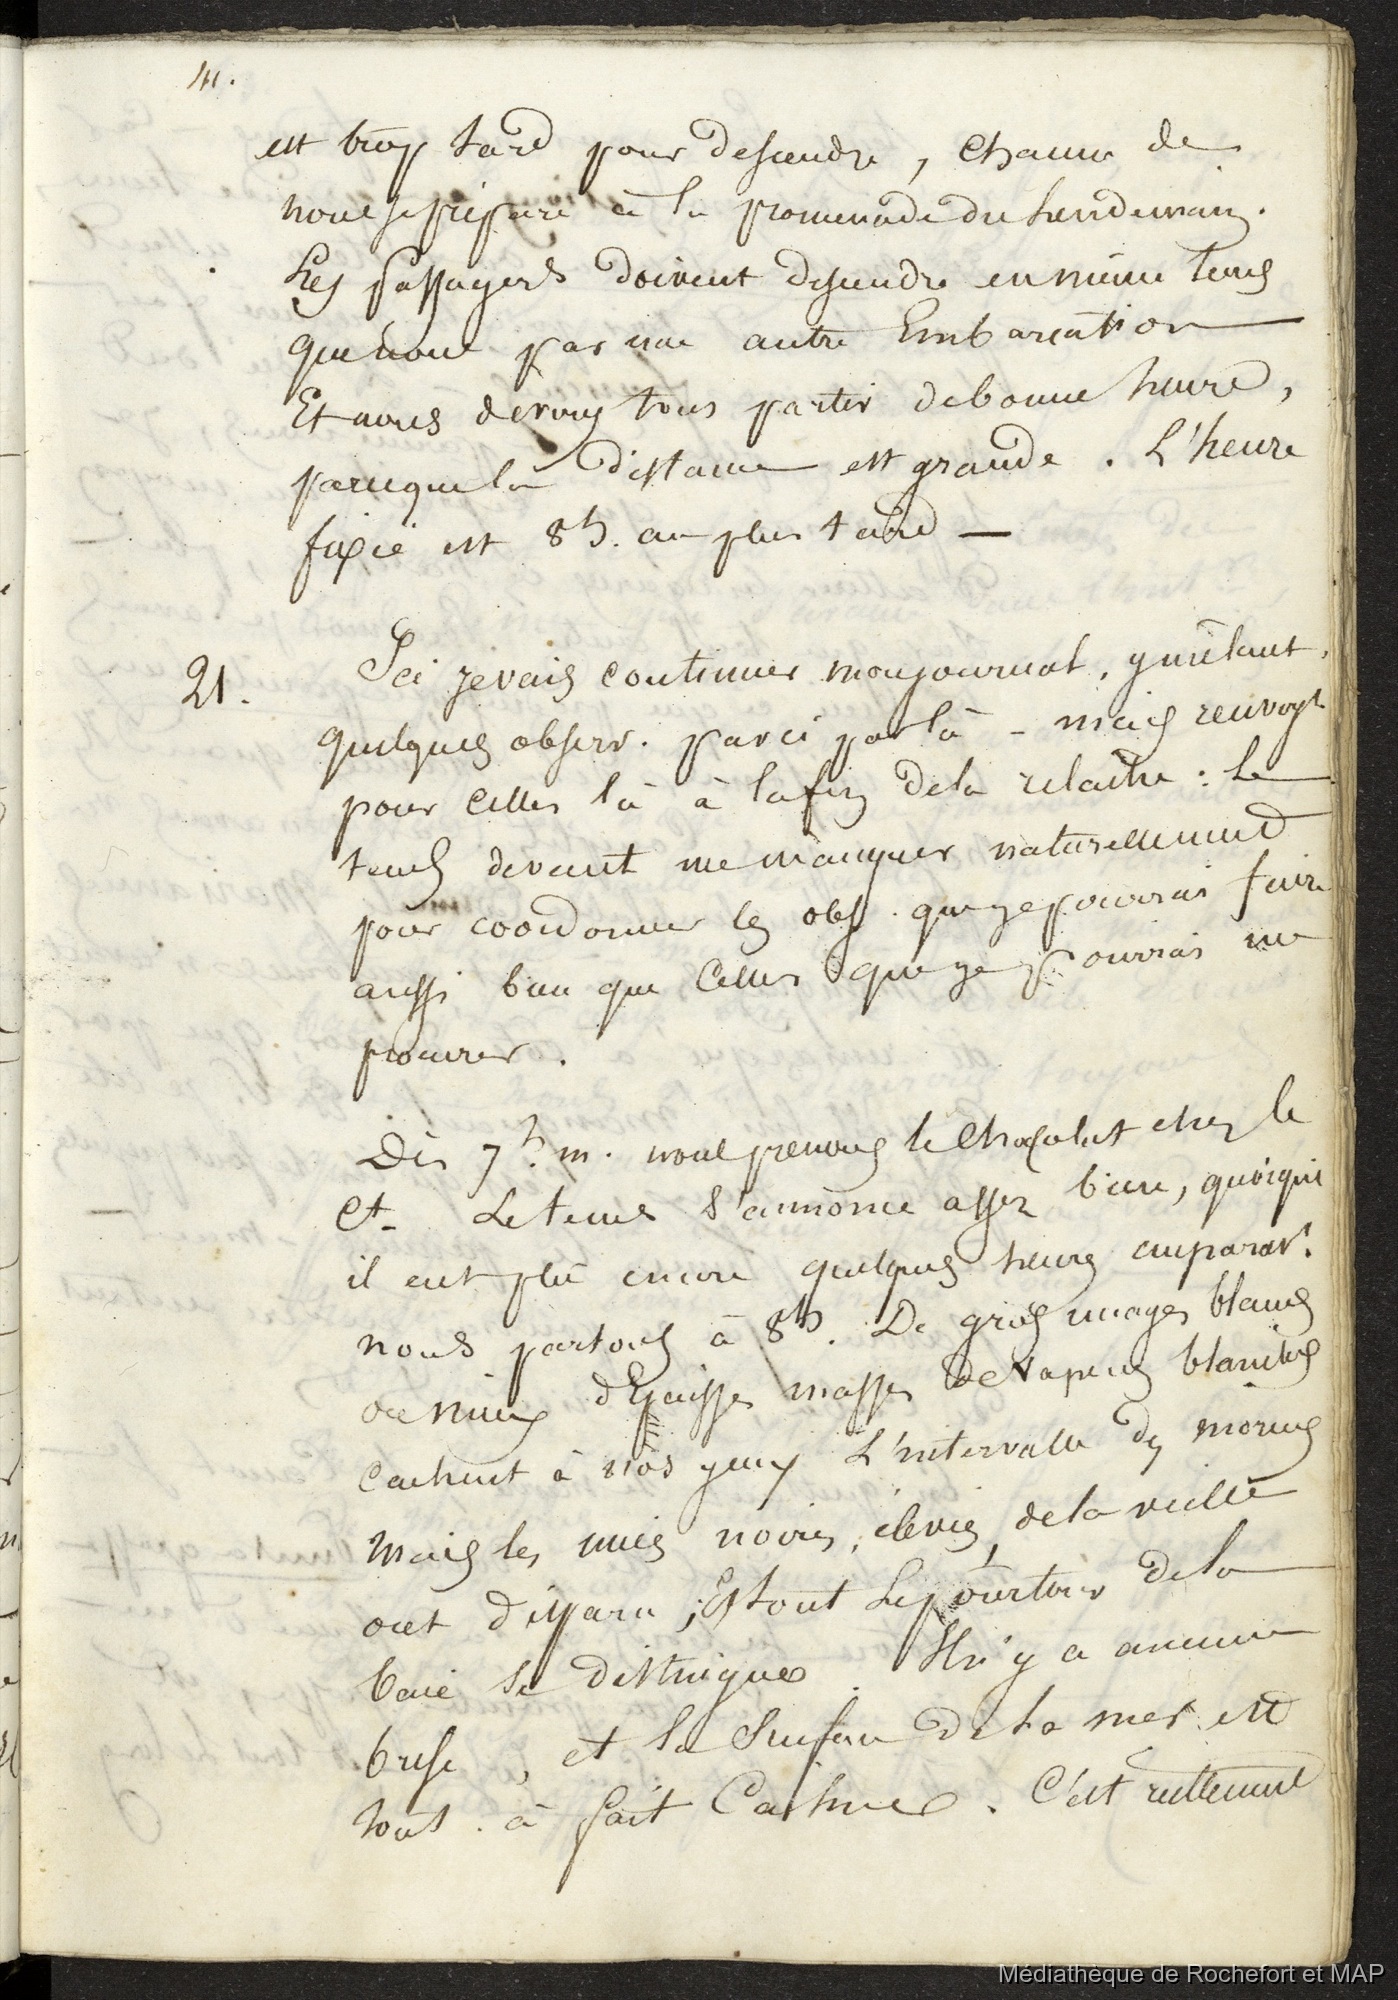 41.
est trop tard pour descendre, chacun de
nous se prépare à la promenade du lendemain.
Les passagers doivent descendre en même tems
que nous par une autre Embarcation
Et nous devons tous partir de bonne heure,
parceque la distance est grande. L'heure
fixée est 8h. au plus tard —
21. Ici je vais continuer mon journal, y mêlant
quelques observ. par ci par là - mais renvoyt
pour celles là à la fin de la relâche : Le
tems devant me manquer naturellement
pour coordonner les obs. que je pourrai faire
aussi bien que celles que je pourrai me
procurer.
Dès 7h. m. nous prenons le chocolat chez le
Ct. Le tems s'annonce assez bien, quoiqu'
il eut plu encore quelques heures auparavt.
nous partons à 8h. De gros nuages blancs
ou mieux d'Epaisses masses de vapeurs blanches
cachent à nos yeux l'intervalle des mornes
Mais les nuées noires, élevées, de la veille
ont disparu, Et tout le pourtour de la
baie se distingue. Il n'y a aucune
brise, et la surface de la mer est
tout à fait Calme. C'est réellement
Médiathèque de Rochefort et MAP